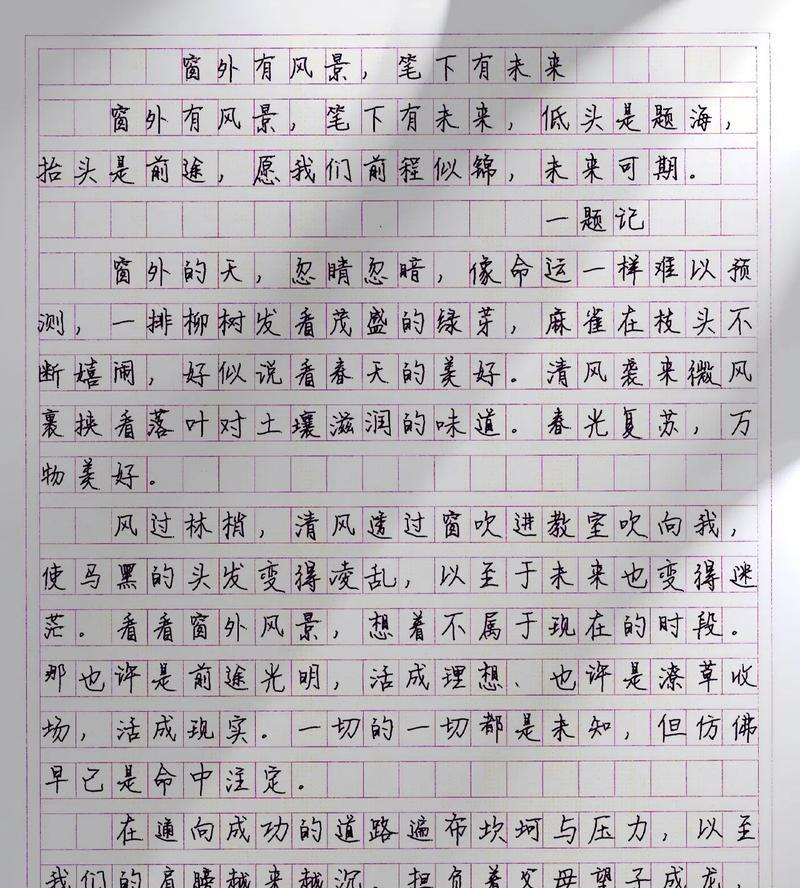 窗外有风景，笔下有未来
窗外有风景，笔下有未来，低头是题海，
抬头是前途，愿我们前程似锦，未来可期。
一题记
窗外的天，忽晴忽暗，像命运一样难以预
测，一排柳树发看茂盛的绿芽，麻雀在枝头不
断嬉闹，好似说看春天的美好。清风袭来微风
裹挟看落叶对土壤滋润的味道。春光复苏，万
物美好。
风过林梢，清风透过窗吹进教室吹向我，
使马黑的头发变得凌乱，以至于未来也变得迷
茫。看看窗外风景，想着不属于现在的时段。
那也许是前途光明，活成理想、也许是潦草收
场，活成现实。一切的一切都是未知，但仿佛
早已是命中注定。
在通向成功的道路遍布坎坷与压力，以至
我们的肩膀越来越沉。担负着父母望子成龙，